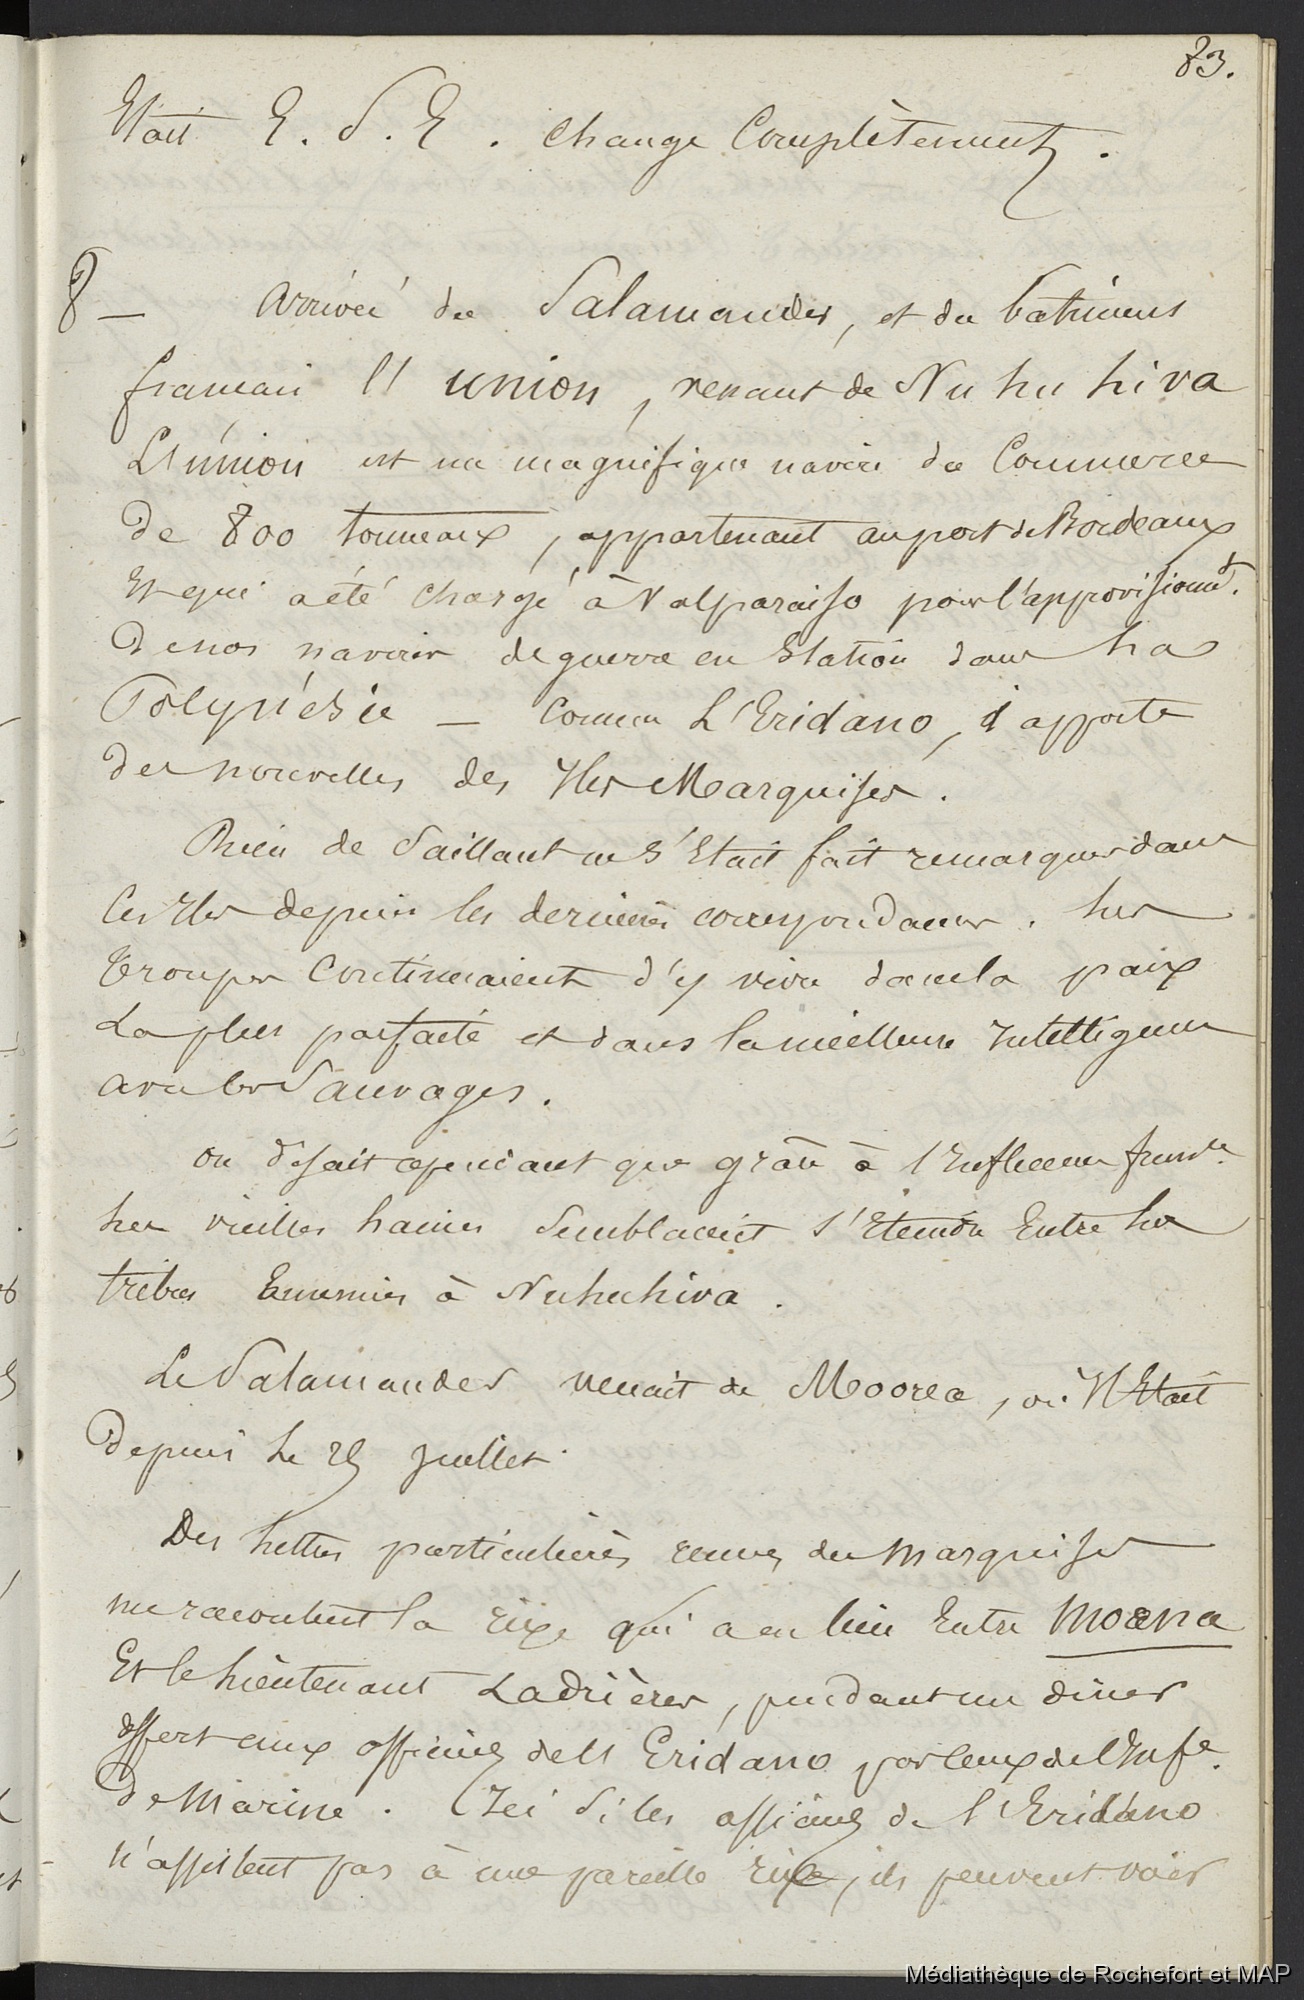 83.
Etait E. S. E. change Complètement.
8 — Arrivée du Salamander, et du batiment
français l'union, venant de Nuhu hiva
L'union est un magnifique navire du Commerce
De 800 tonneaux, appartenant au port de Bordeaux
Et qui a été chargé à Valparaiso pour l'approvisionnt.
De nos navires de guerre en Station dans La
Polynésie — Comme L'Eridano, il apporte
des nouvelles des Iles Marquises.
Rien de Saillant ne S'était fait remarquer dans
Ces Iles depuis les dernières correspondances. Les
troupes Continuaient d'y vivre dans la paix
La plus parfaite et dans la meilleure Intelligence
avec les Sauvages.
On disait cependant que grâce à l'Influence
Les vieilles haines Semblaient s'Eteindre Entre les
tribus Ennemies à Nuhuhiva.
Le Salamander venait de Moorea, où Il Etait
Depuis Le 25 Juillet.
Des Lettres particulières venues des Marquises
me racontent la rixe qui a eu lieu Entre Moana
Et le Lieutenant Ladrières, pendant un diner
offert aux officiers de l'Eridano par ceux de l'Infe.
De Marine. Ici Si les officiers de l'Eridano
n'assistent pas à une pareille rixe, ils peuvent voir
Médiathèque de Rochefort et MAP